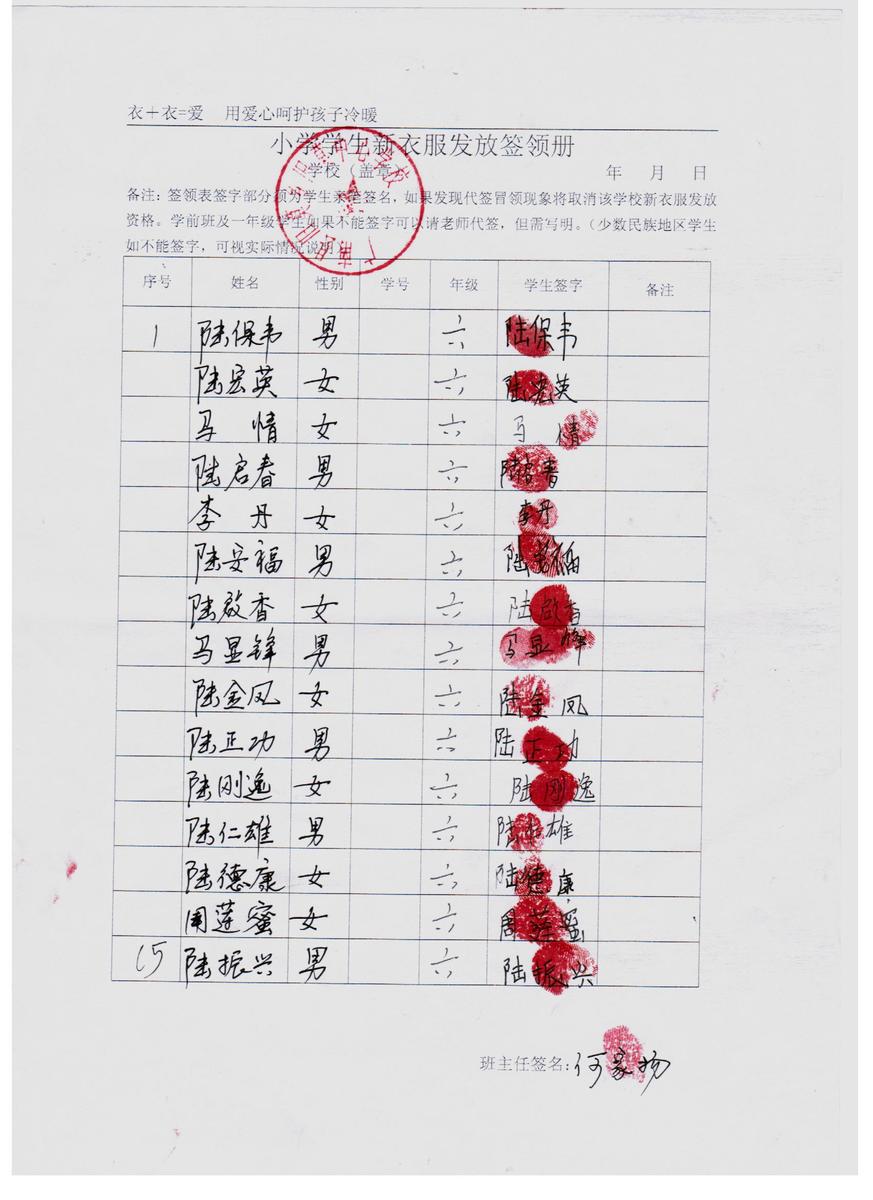 衣+衣=爱 用爱心呵护孩子冷暖
小学学生新衣服发放签领册
学校(盖章) 年 月 日
备注:签领表签字部分须为学生亲笔签名,如果发现代签冒领现象将取消该学校新衣服发放
资格。学前班及一年级学生如果不能签字可以请老师代签,但需写明。(少数民族地区学生
如不能签字,可视实际情况说明)
序号 姓名 性别 学号 年级 学生签字 备注
1 陆保韦 男 六 陆保韦
陆宏英 女 六 陆宏英
马情 女 六 马情
陆启春 男 六 陆启春
李丹 女 六 李丹
陆安福 男 六 陆安福
陆啟香 女 六 陆啟香
马显锋 男 六 马显锋
陆金凤 女 六 陆金凤
陆正功 男 六 陆正功
陆刚逸 女 六 陆刚逸
陆仁雄 男 六 陆仁雄
陆德康 女 六 陆德康
周莲蜜 女 六 周莲蜜
15 陆振兴 男 六 陆振兴
班主任签名:何家扬